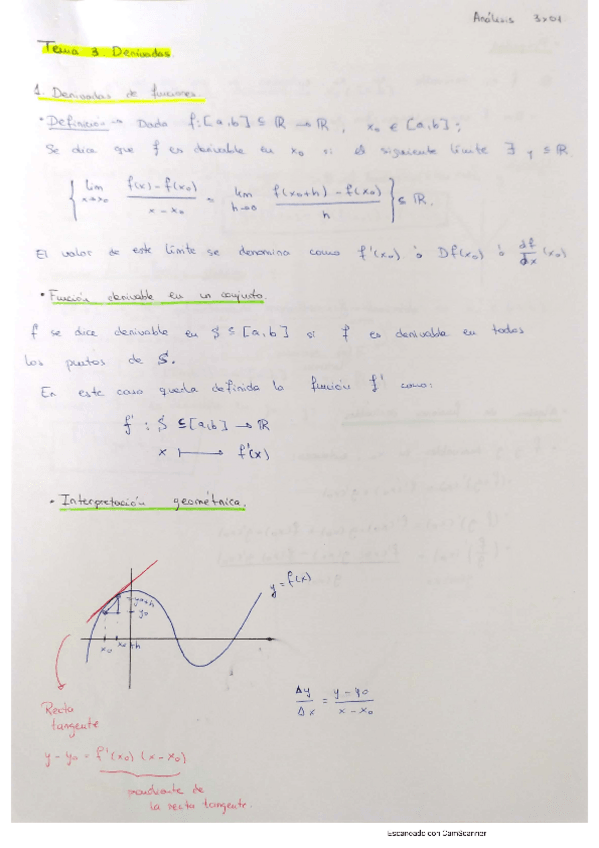 Análisis
Tema 3. Derivadas.
1. Derivadas de funciones.
• Definición → Dada f: [a,b] ⊆ ℝ → ℝ, x₀ ∈ [a,b];
Se dice que f es derivable en x₀ si el siguiente límite ∃ y ⊆ ℝ.
{ lim x→x₀ (f(x) - f(x₀))/(x - x₀) = lim h→0 (f(x₀+h) - f(x₀))/h } ⊆ ℝ.
El valor de este límite se denomina como f'(x₀) ó Df(x₀) ó df/dx (x₀)
• Función derivable en un conjunto.
f se dice derivable en S ⊆ [a,b] si f es derivable en todos
los puntos de S.
En este caso queda definida la función f' como:
f' : S ⊆ [a,b] → ℝ
x ⟼ f'(x)
• Interpretación geométrica.
y = f(x)
y₀+h
y₀
x₀ x₀+h
Δy/Δx = (y - y₀)/(x - x₀)
Recta
tangente
y - y₀ = f'(x₀) (x - x₀)
pendiente de
la recta tangente.
Escaneado con CamScanner